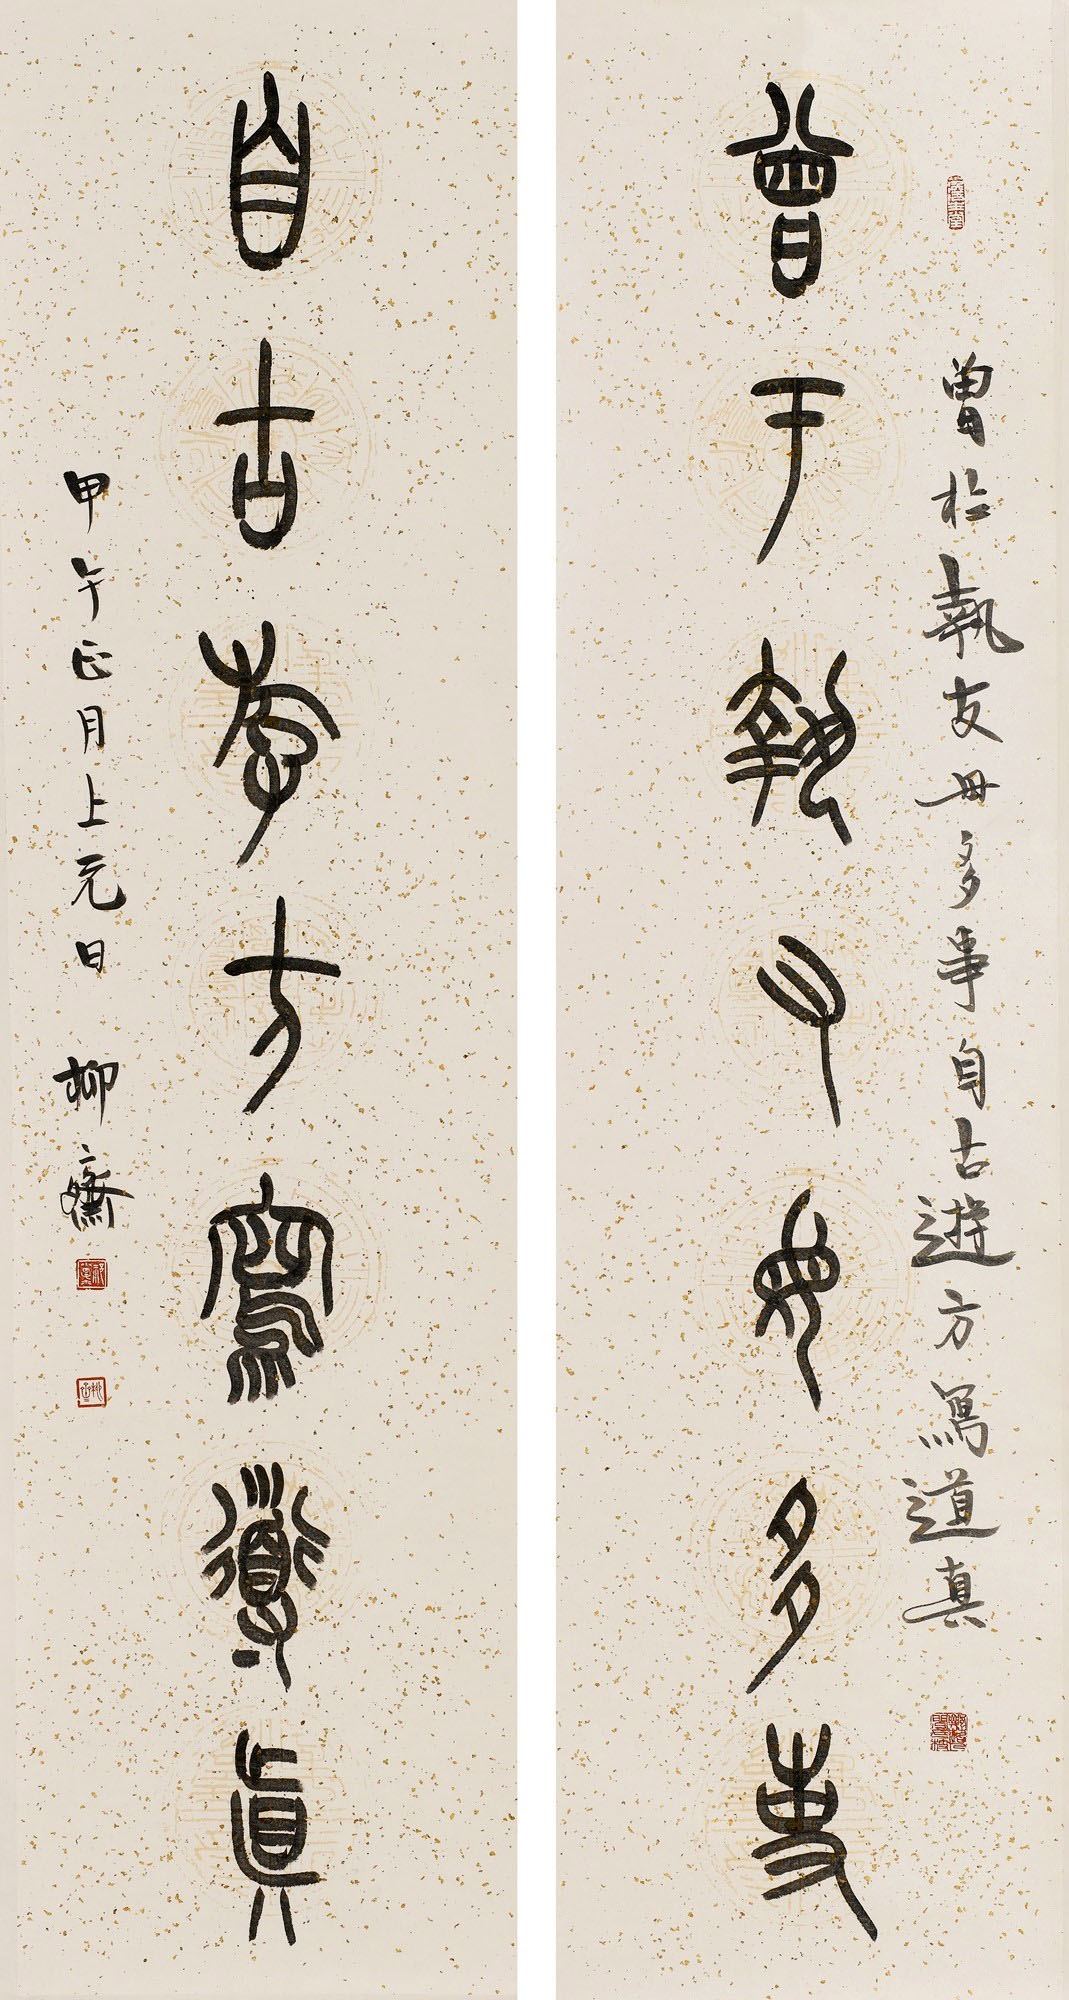 曾於執友毋多事自古遊方寫道真
曾于執友毋多事
自古游方寫道真
甲午正月上元日 柳齋